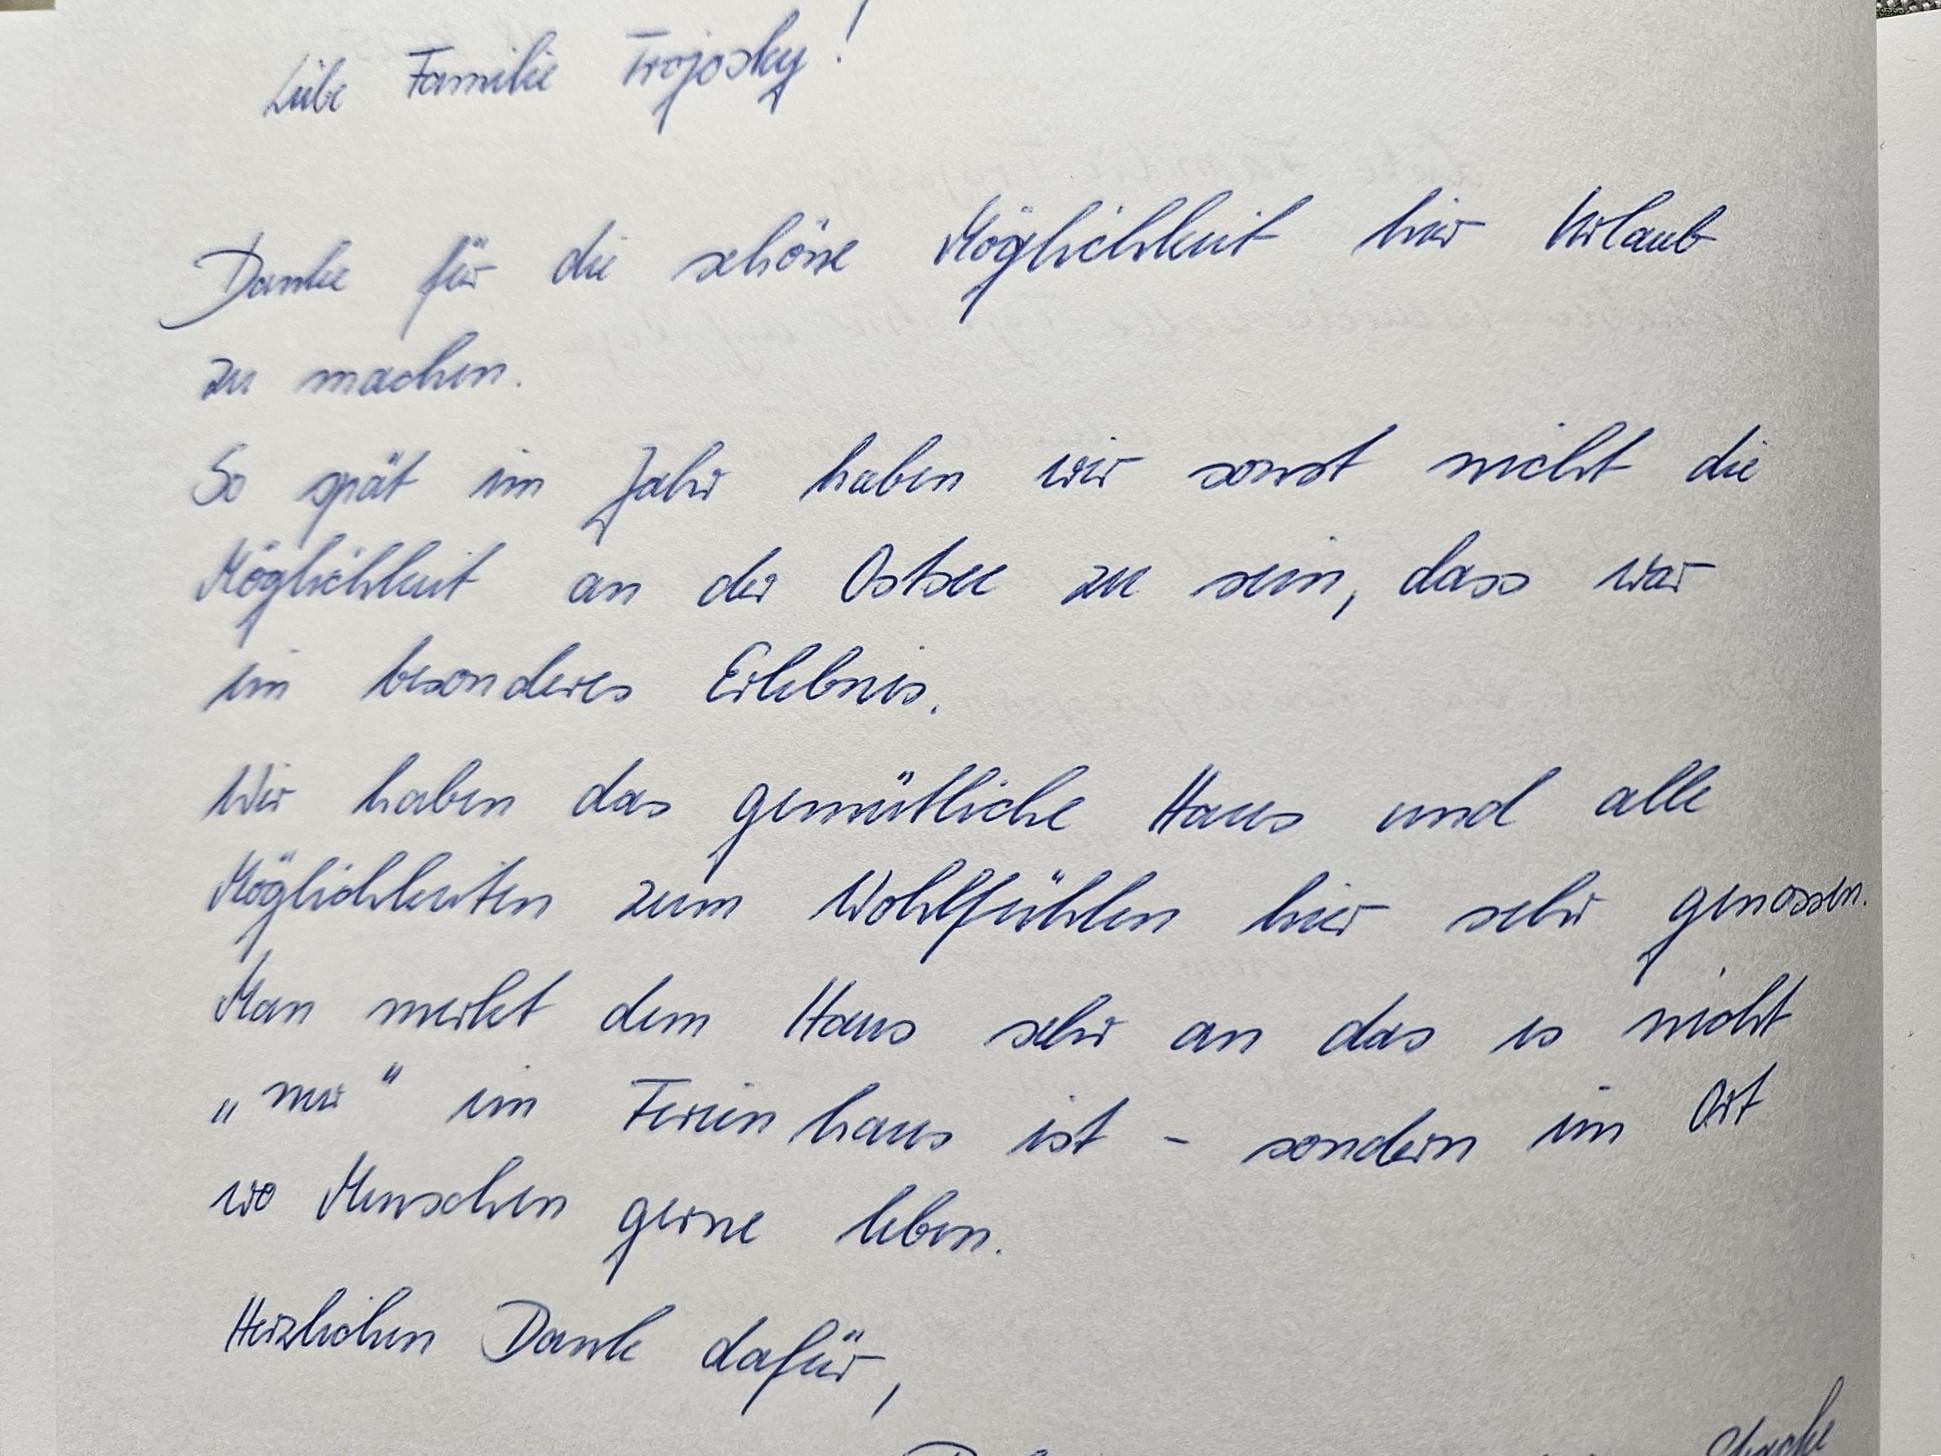 Liebe Familie Trojosky!
Danke für die schöne Möglichkeit hier Urlaub
zu machen.
So spät im Jahr haben wir sonst nicht die
Möglichkeit an der Ostsee zu sein, dass war
ein besonderes Erlebnis.
Wir haben das gemütliche Haus und alle
Möglichkeiten zum Wohlfühlen hier sehr genossen.
Man merkt dem Haus sehr an das es nicht
„nur“ ein Ferienhaus ist – sondern ein Ort
wo Menschen gerne leben.
Herzlichen Dank dafür,